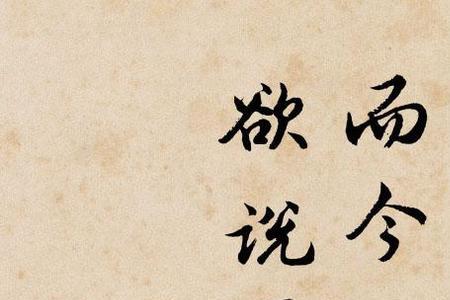 而今
欲说